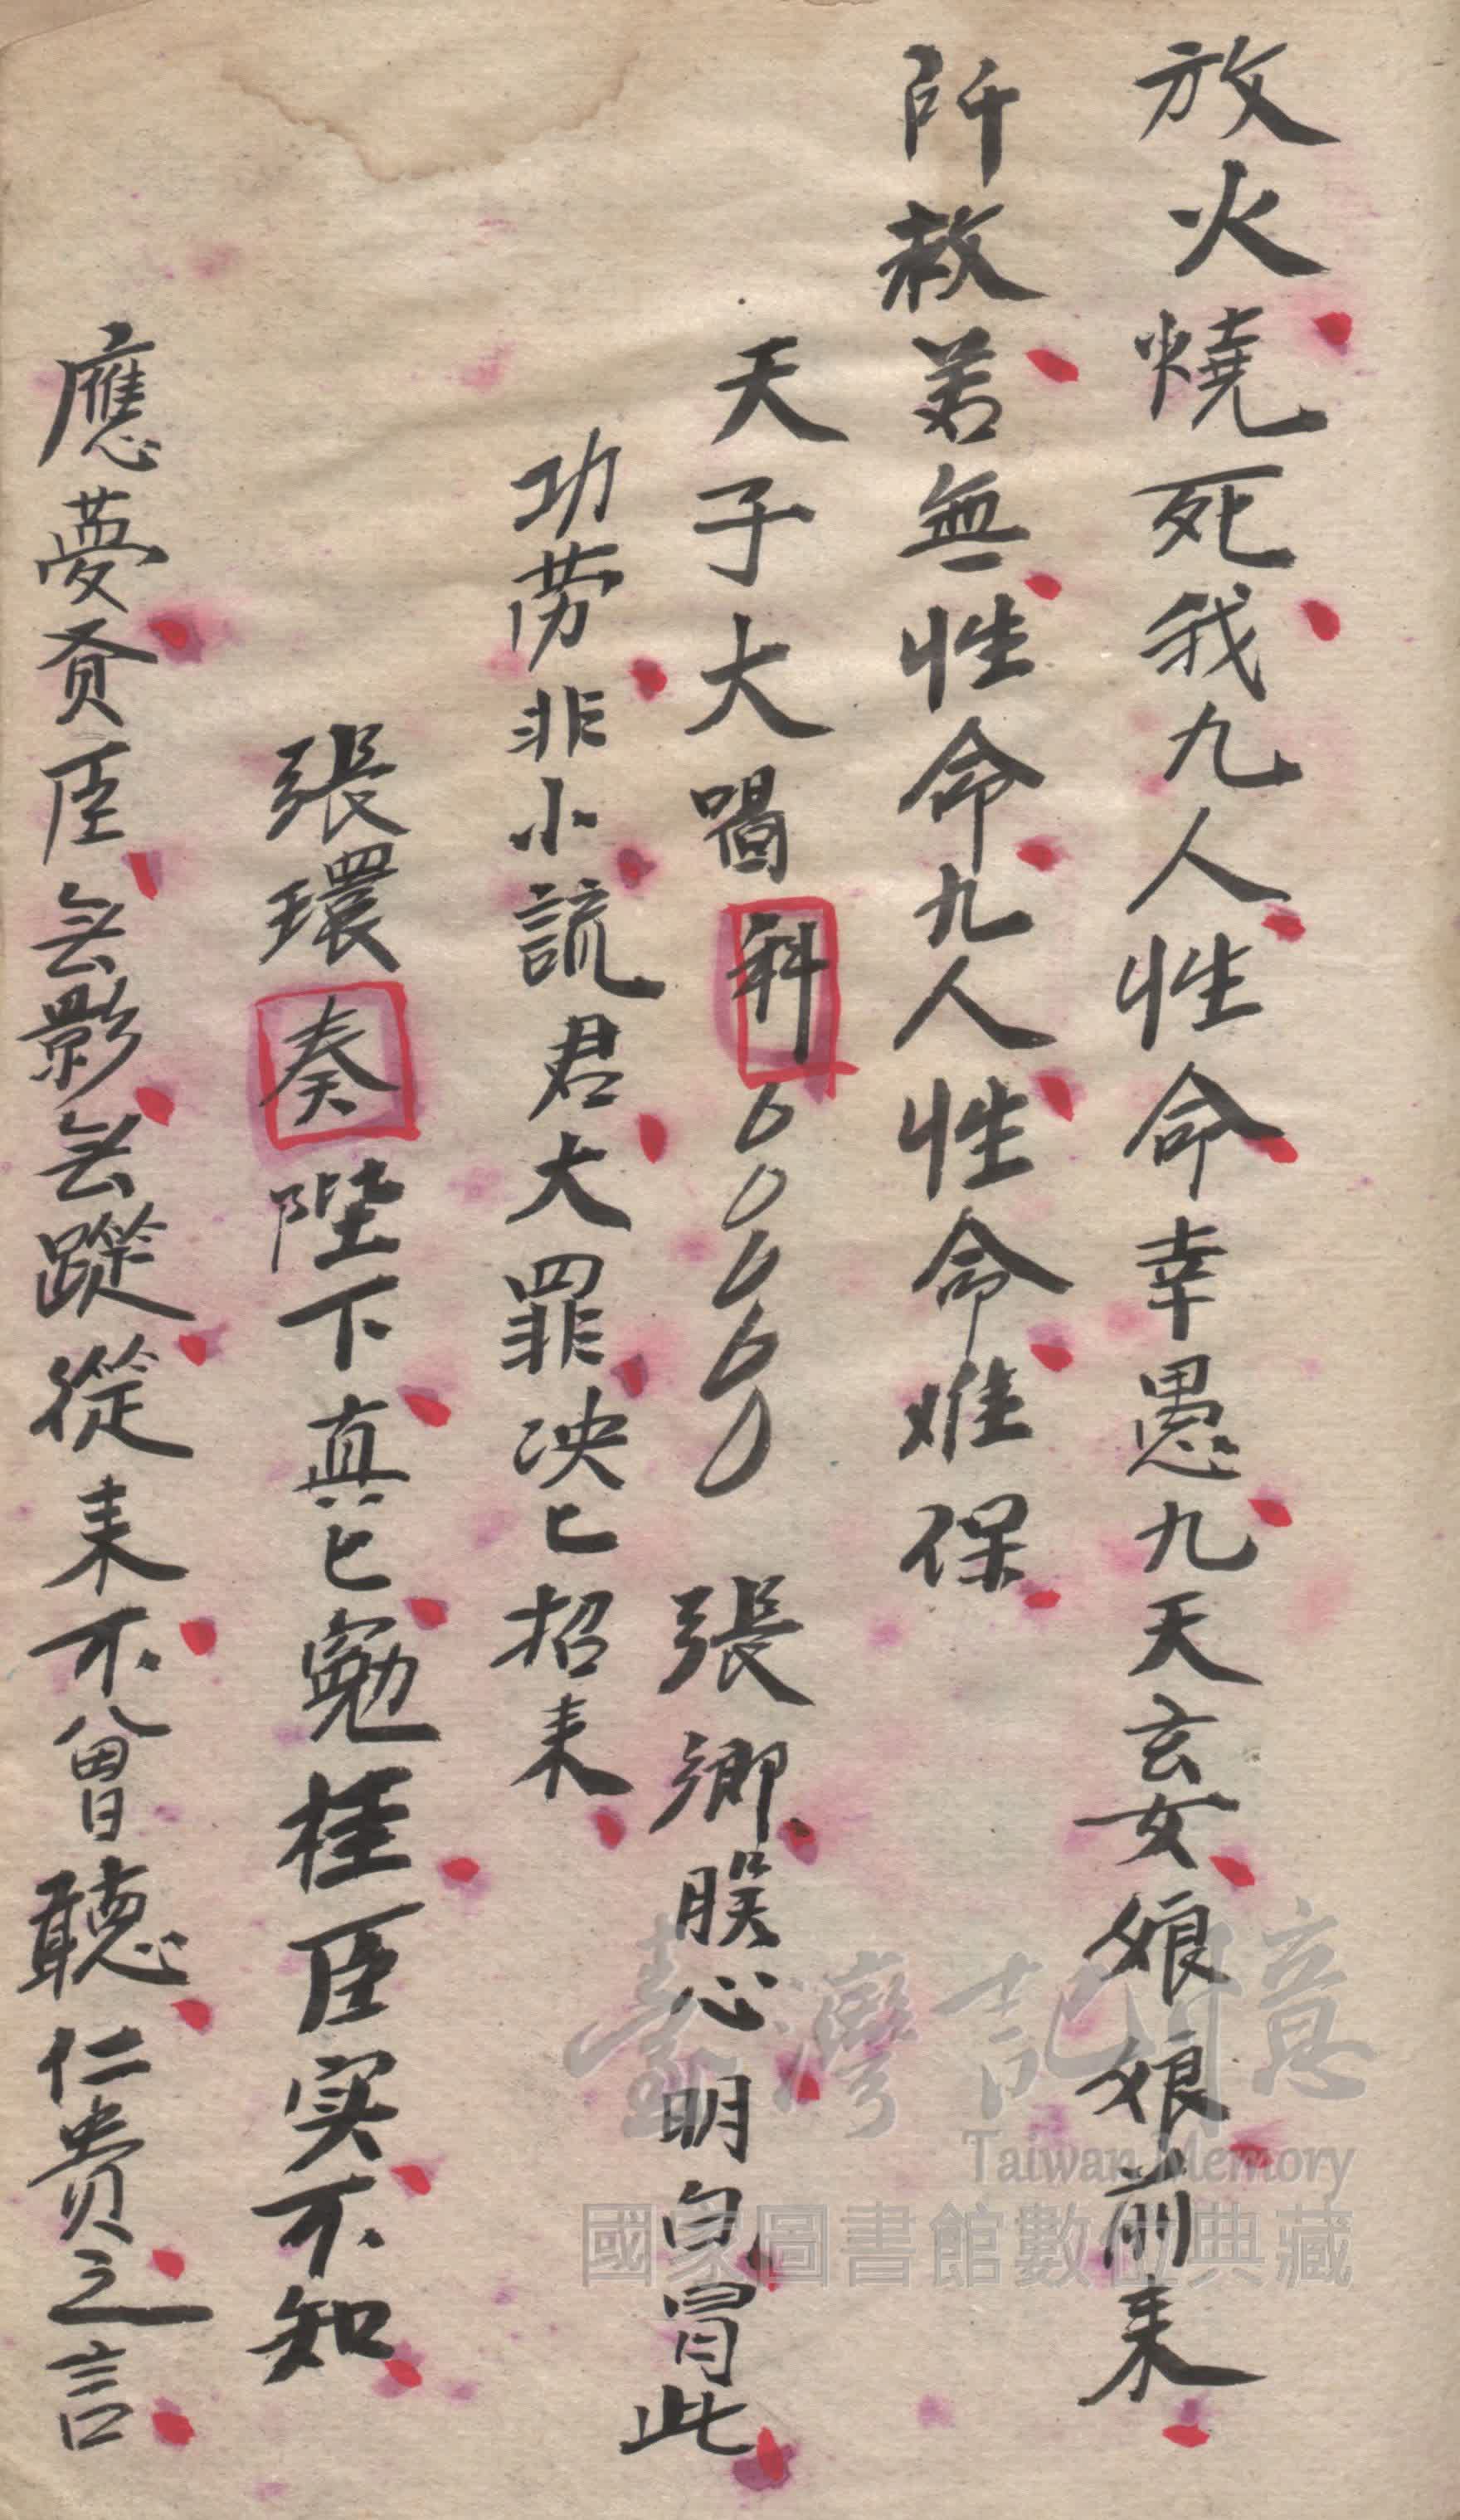 放火燒死我九人性命幸愚九天玄女娘娘前来
所救若無性命九人性命难保
天子大喝科ㄥㄥㄥㄥㄥ 張卿朕心明白冒此
功劳非小謊君大罪决匕招来
張環奏陛下真匕寃桂臣实不知
應夢賢臣無影無蹤從来不曾聽仁貴之言
臺灣記憶
Taiwan Memory
國家圖書館數位典藏